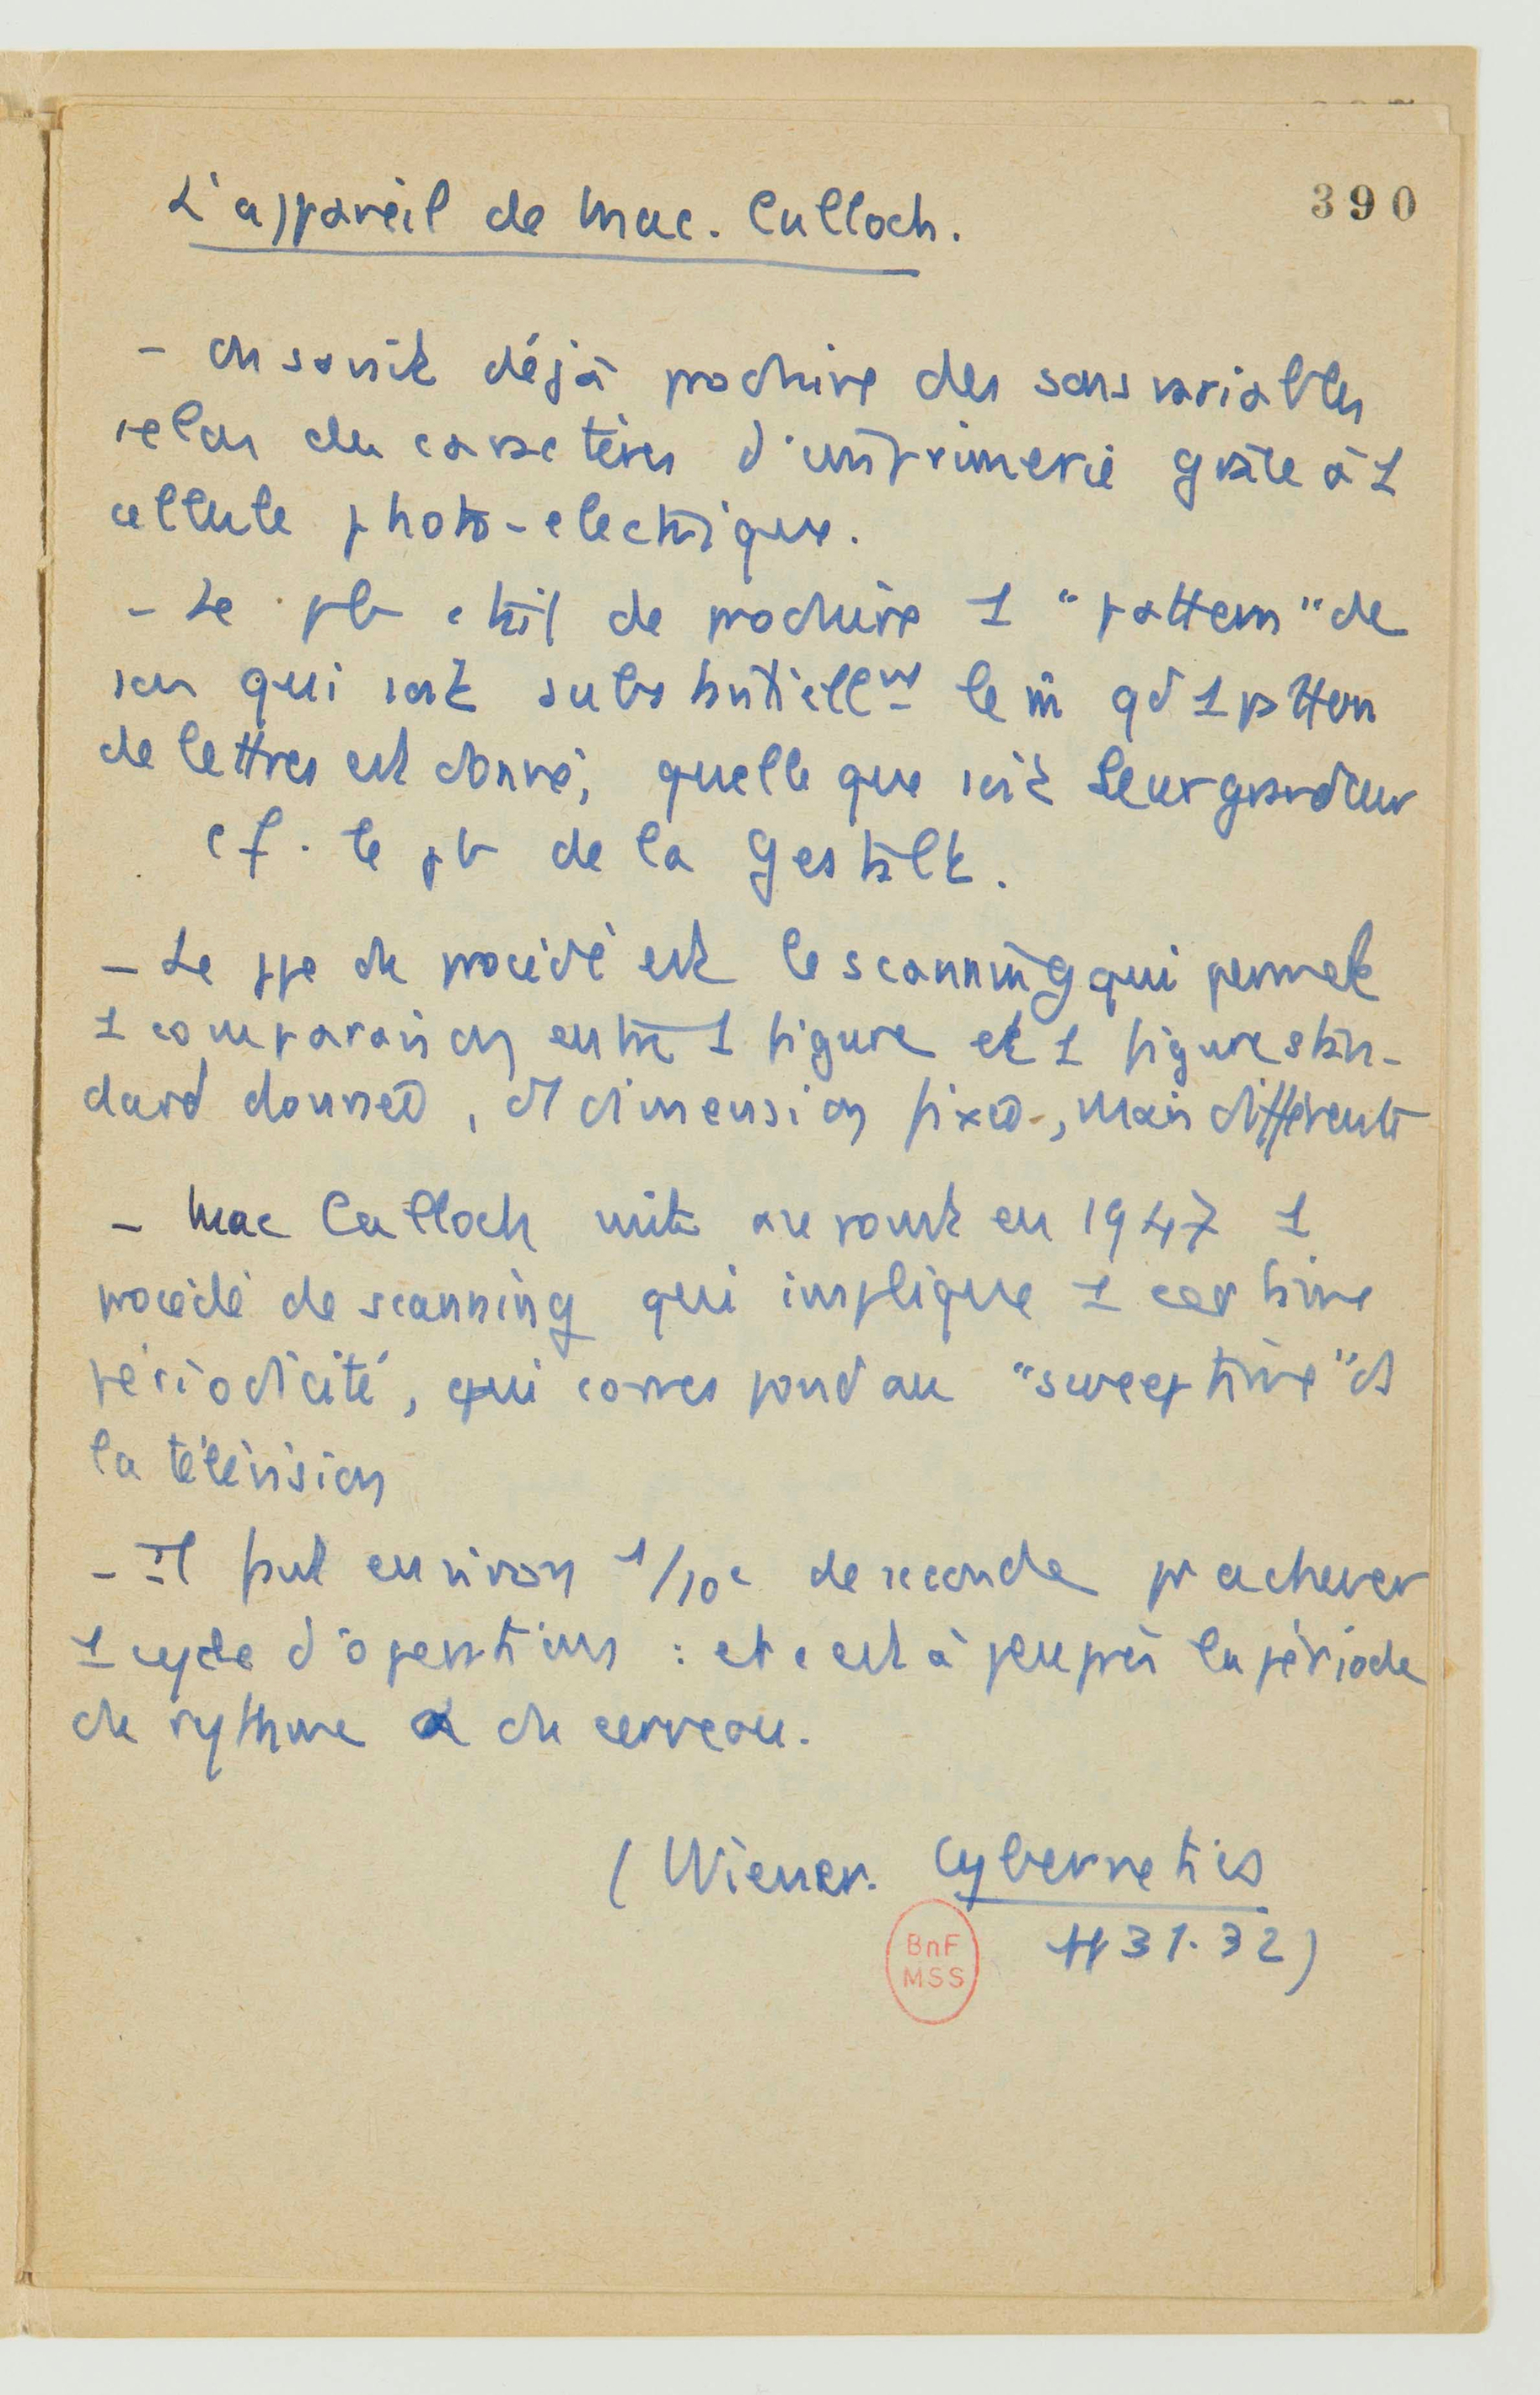 390
L'appareil de Mac. Culloch.
- On savait déjà produire des sons variables
selon des caractères d'imprimerie grâce à 1
cellule photo-electrique.
- Le pb était de produire 1 "pattern" de
son qui soit substantiellmt le m̂ qd 1 pattern
de lettres est donné, quelle que soit leur grandeur
cf. le pb de la Gestalt.
- Le ppe du procédé est le scanning qui permet
1 comparaison entre 1 figure et 1 figure stan-
dard donnée, et dimension fixée, mais différente
- Mac Culloch mit au point en 1947 1
procédé de scanning qui implique 1 certaine
périodicité, qui correspond au "sweep time" ds
la télévision
- Il faut environ 1/10e de seconde pr achever
1 cycle d'opérations : et c'est à peu près la période
du rythme α du cerveau.
(Wiener. Cybernetics
31.32)
BnF
MSS